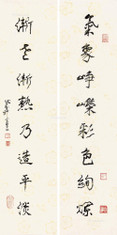 氣象崢嶸彩色絢爛
漸老漸熟乃造平淡